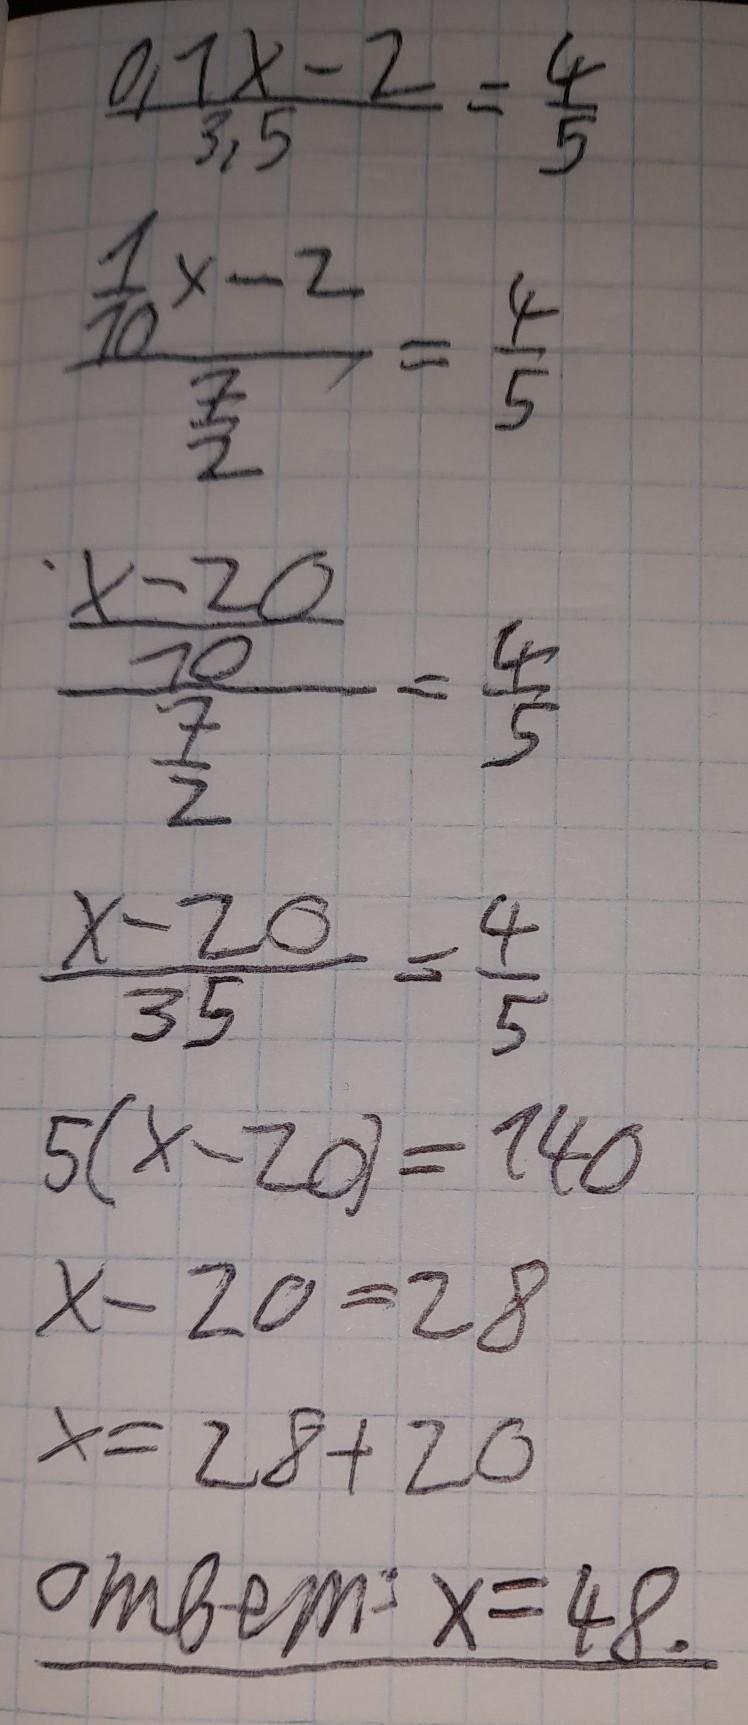 0,1x-2/3,5 = 4/5
1/10 x-2 / 7/2 = 4/5
x-20/10 / 7/2 = 4/5
x-20/35 = 4/5
5(x-20)=140
x-20=28
x=28+20
ответ: x=48.